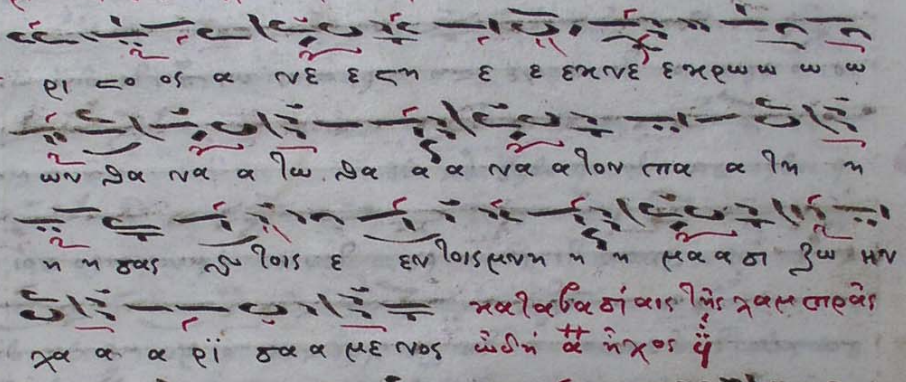 ρι ϛο ος α νε ε ϛη ε ε εκνε εκρωω ω ω
ων θα να α τω θα α α να α τον πα α τη η
η η σας ϗ τοις ε εν τοις μνη η η μα α σι ζω ην
χα α α ρϊ σα α με νος καταβασίαις τῆς λαμπρᾶς
ὠδὴ α ἦχος